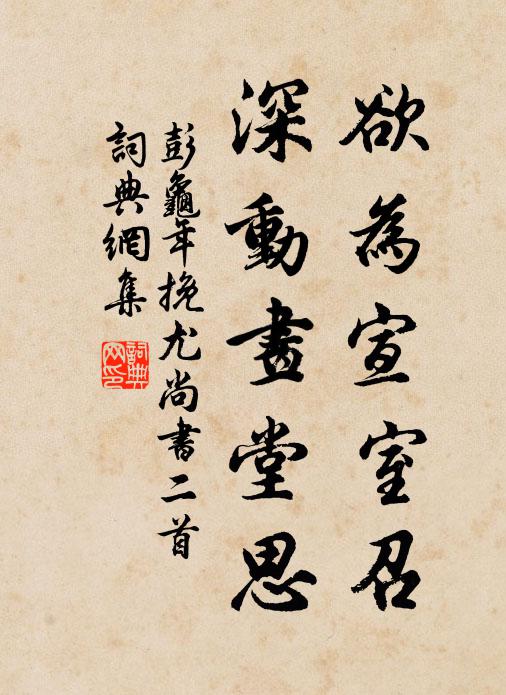 欲為宣室召
深動畫堂思
彭龜年挽尤尚書二首
詞典網集
詞典
网印